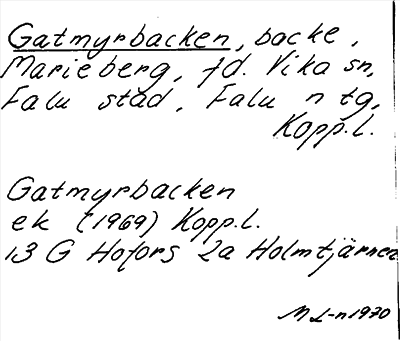 Gatmyrbacken, backe,
Marieberg, fd. Vika sn,
Falu stad, Falu n tg,
Kopp.l.
Gatmyrbacken
ek (1969) Kopp.l.
13 G Hofors 2a Holmtjärnen
M L-n 1970